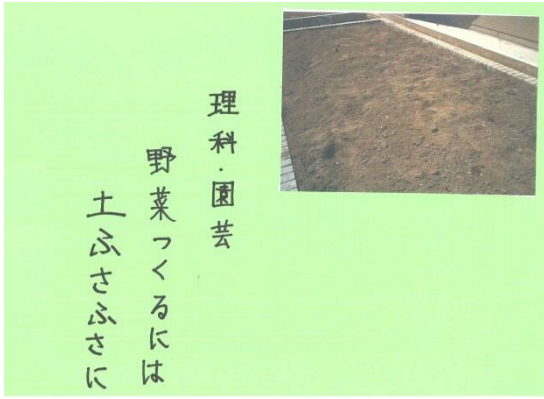 理科・園芸
野菜つくるには
土ふさふさに